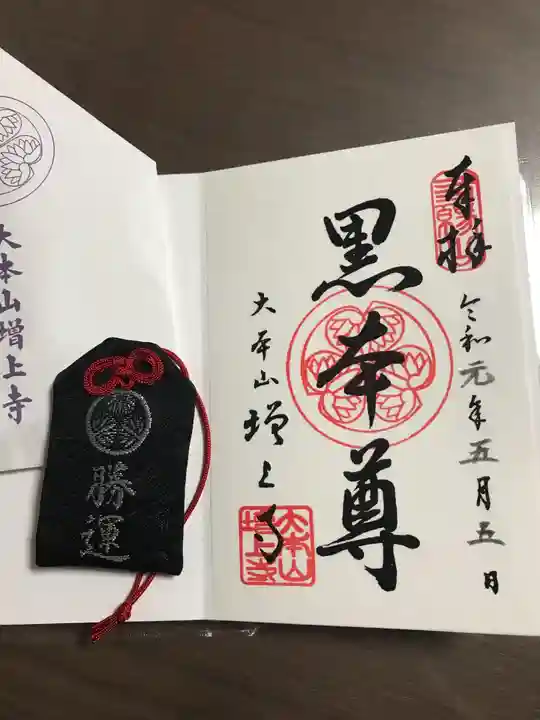 奉拝
令和元年五月五日
黒本尊
大本山増上寺
大本山
増上寺
大本山増上寺
勝運